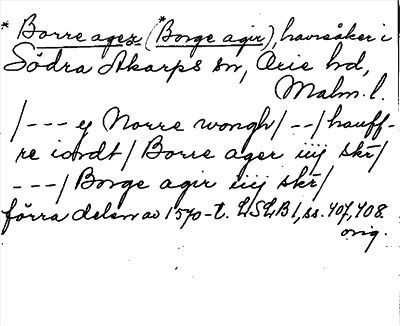 * Borre ager (*Borge agir), havreåker i
Södra Åkarps sn, Oxie hd,
Malm. l.
/--- ej Norre wongh/--/ hauff-
re iordt/ Borre ager iiij skr/
---/ Borge agir iiij skr/
förra delen av 1570-t. LSLB 1, ss. 407, 408.
orig.